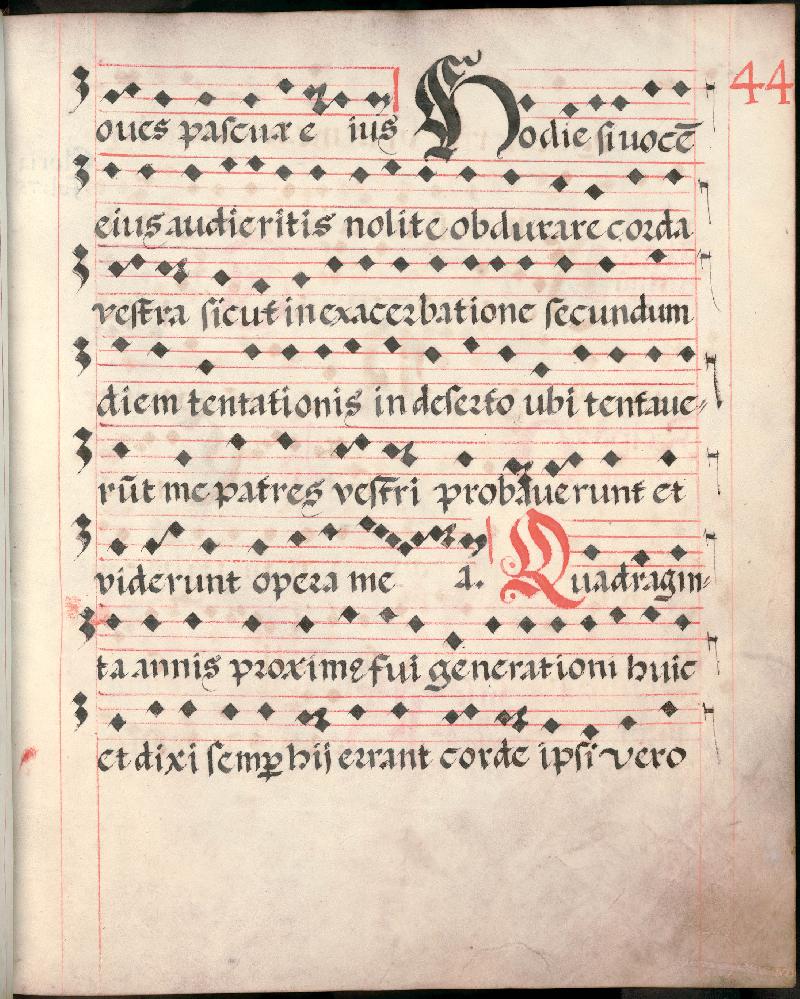 44
oues pascuæ e ius Hodie si uocē
eius audieritis nolite obdurare corda
vestra sicut in exacerbatione secundum
diem tentationis in deserto ubi tentaue-
rūt me patres vestri probauerunt et
viderunt opera me a. Quadragin-
ta annis proximꝰ fui generationi huic
et dixi semꝑ hij errant corde ipsi vero